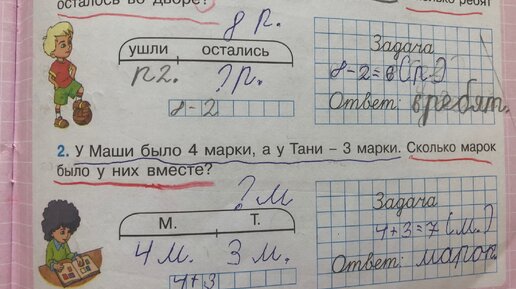 осталось во дворе? сколько ребят
8 р.
ушли остались
р2. ? р.
8-2
Задача
8-2=6 (р.)
Ответ: ребят.
2. У Маши было 4 марки, а у Тани – 3 марки. Сколько марок
было у них вместе?
? м
М. Т.
4 м. 3 м.
4+3
Задача
4+3=7 (м.)
Ответ: марок.